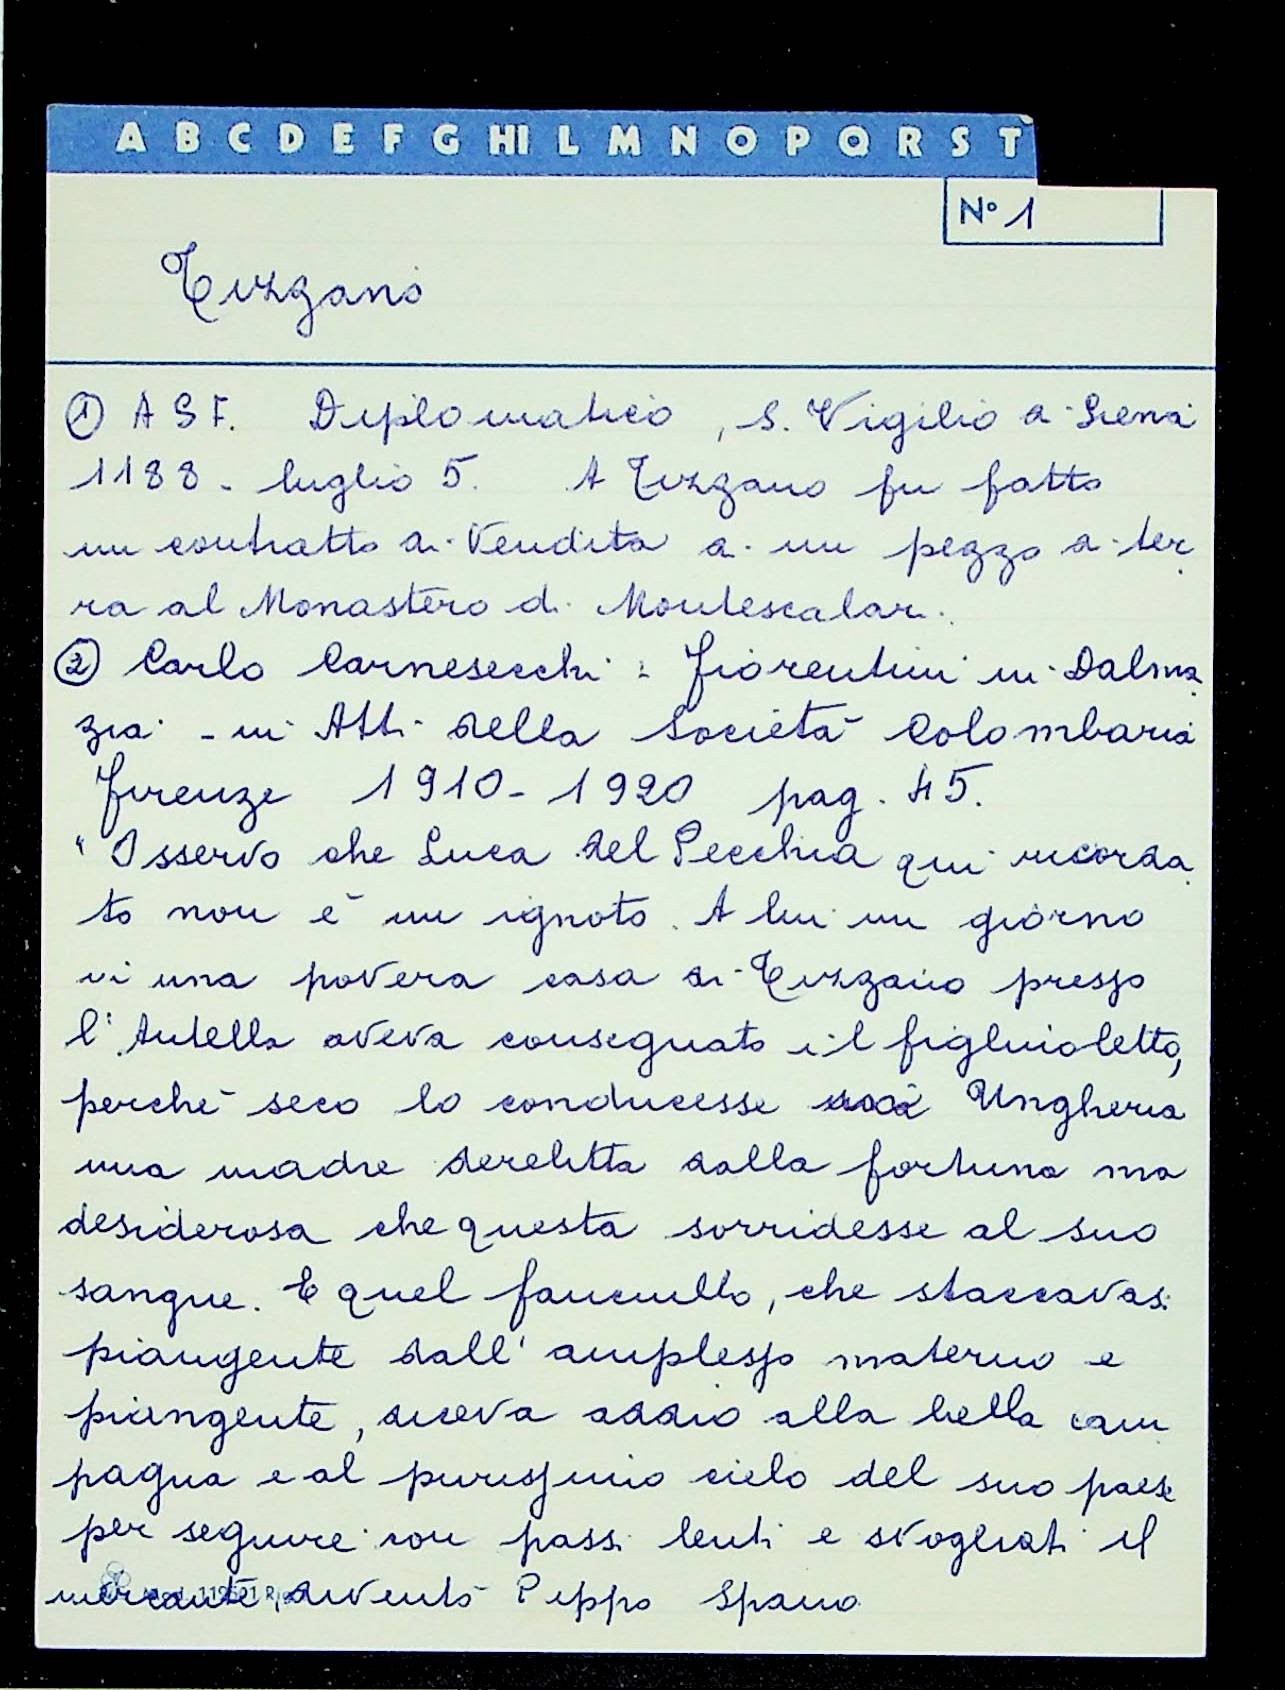 A B C D E F G HI L M N O P Q R S T
N° 1
Tizzano
① A S F. Diplomatico, S. Vigilio di Siena
1188 - luglio 5. A Tizzano fu fatto
un contratto di vendita di un pezzo di ter
ra al Monastero di Montescalari.
② Carlo Carnesecchi: Fiorentini in Dalma
zia - in Atti della Società Colombaria
Firenze 1910-1920 pag. 45.
"Osservo che Luca del Pecchia qui ricorda
to non è un ignoto. A lui un giorno
in una povera casa di Tizzano presso
l'Antella aveva consegnato il figliuioletto,
perchè seco lo conducesse Ungheria
una madre derelitta dalla fortuna ma
desiderosa che questa sorridesse al suo
sangue. E quel fanciullo, che staccavasi
piangente dall'amplesso materno e
piangente, diceva addio alla bella cam
pagna e al purissimo cielo del suo paese
per seguire con passi lenti e svogliati il
mercante, diventò Pippo Spano